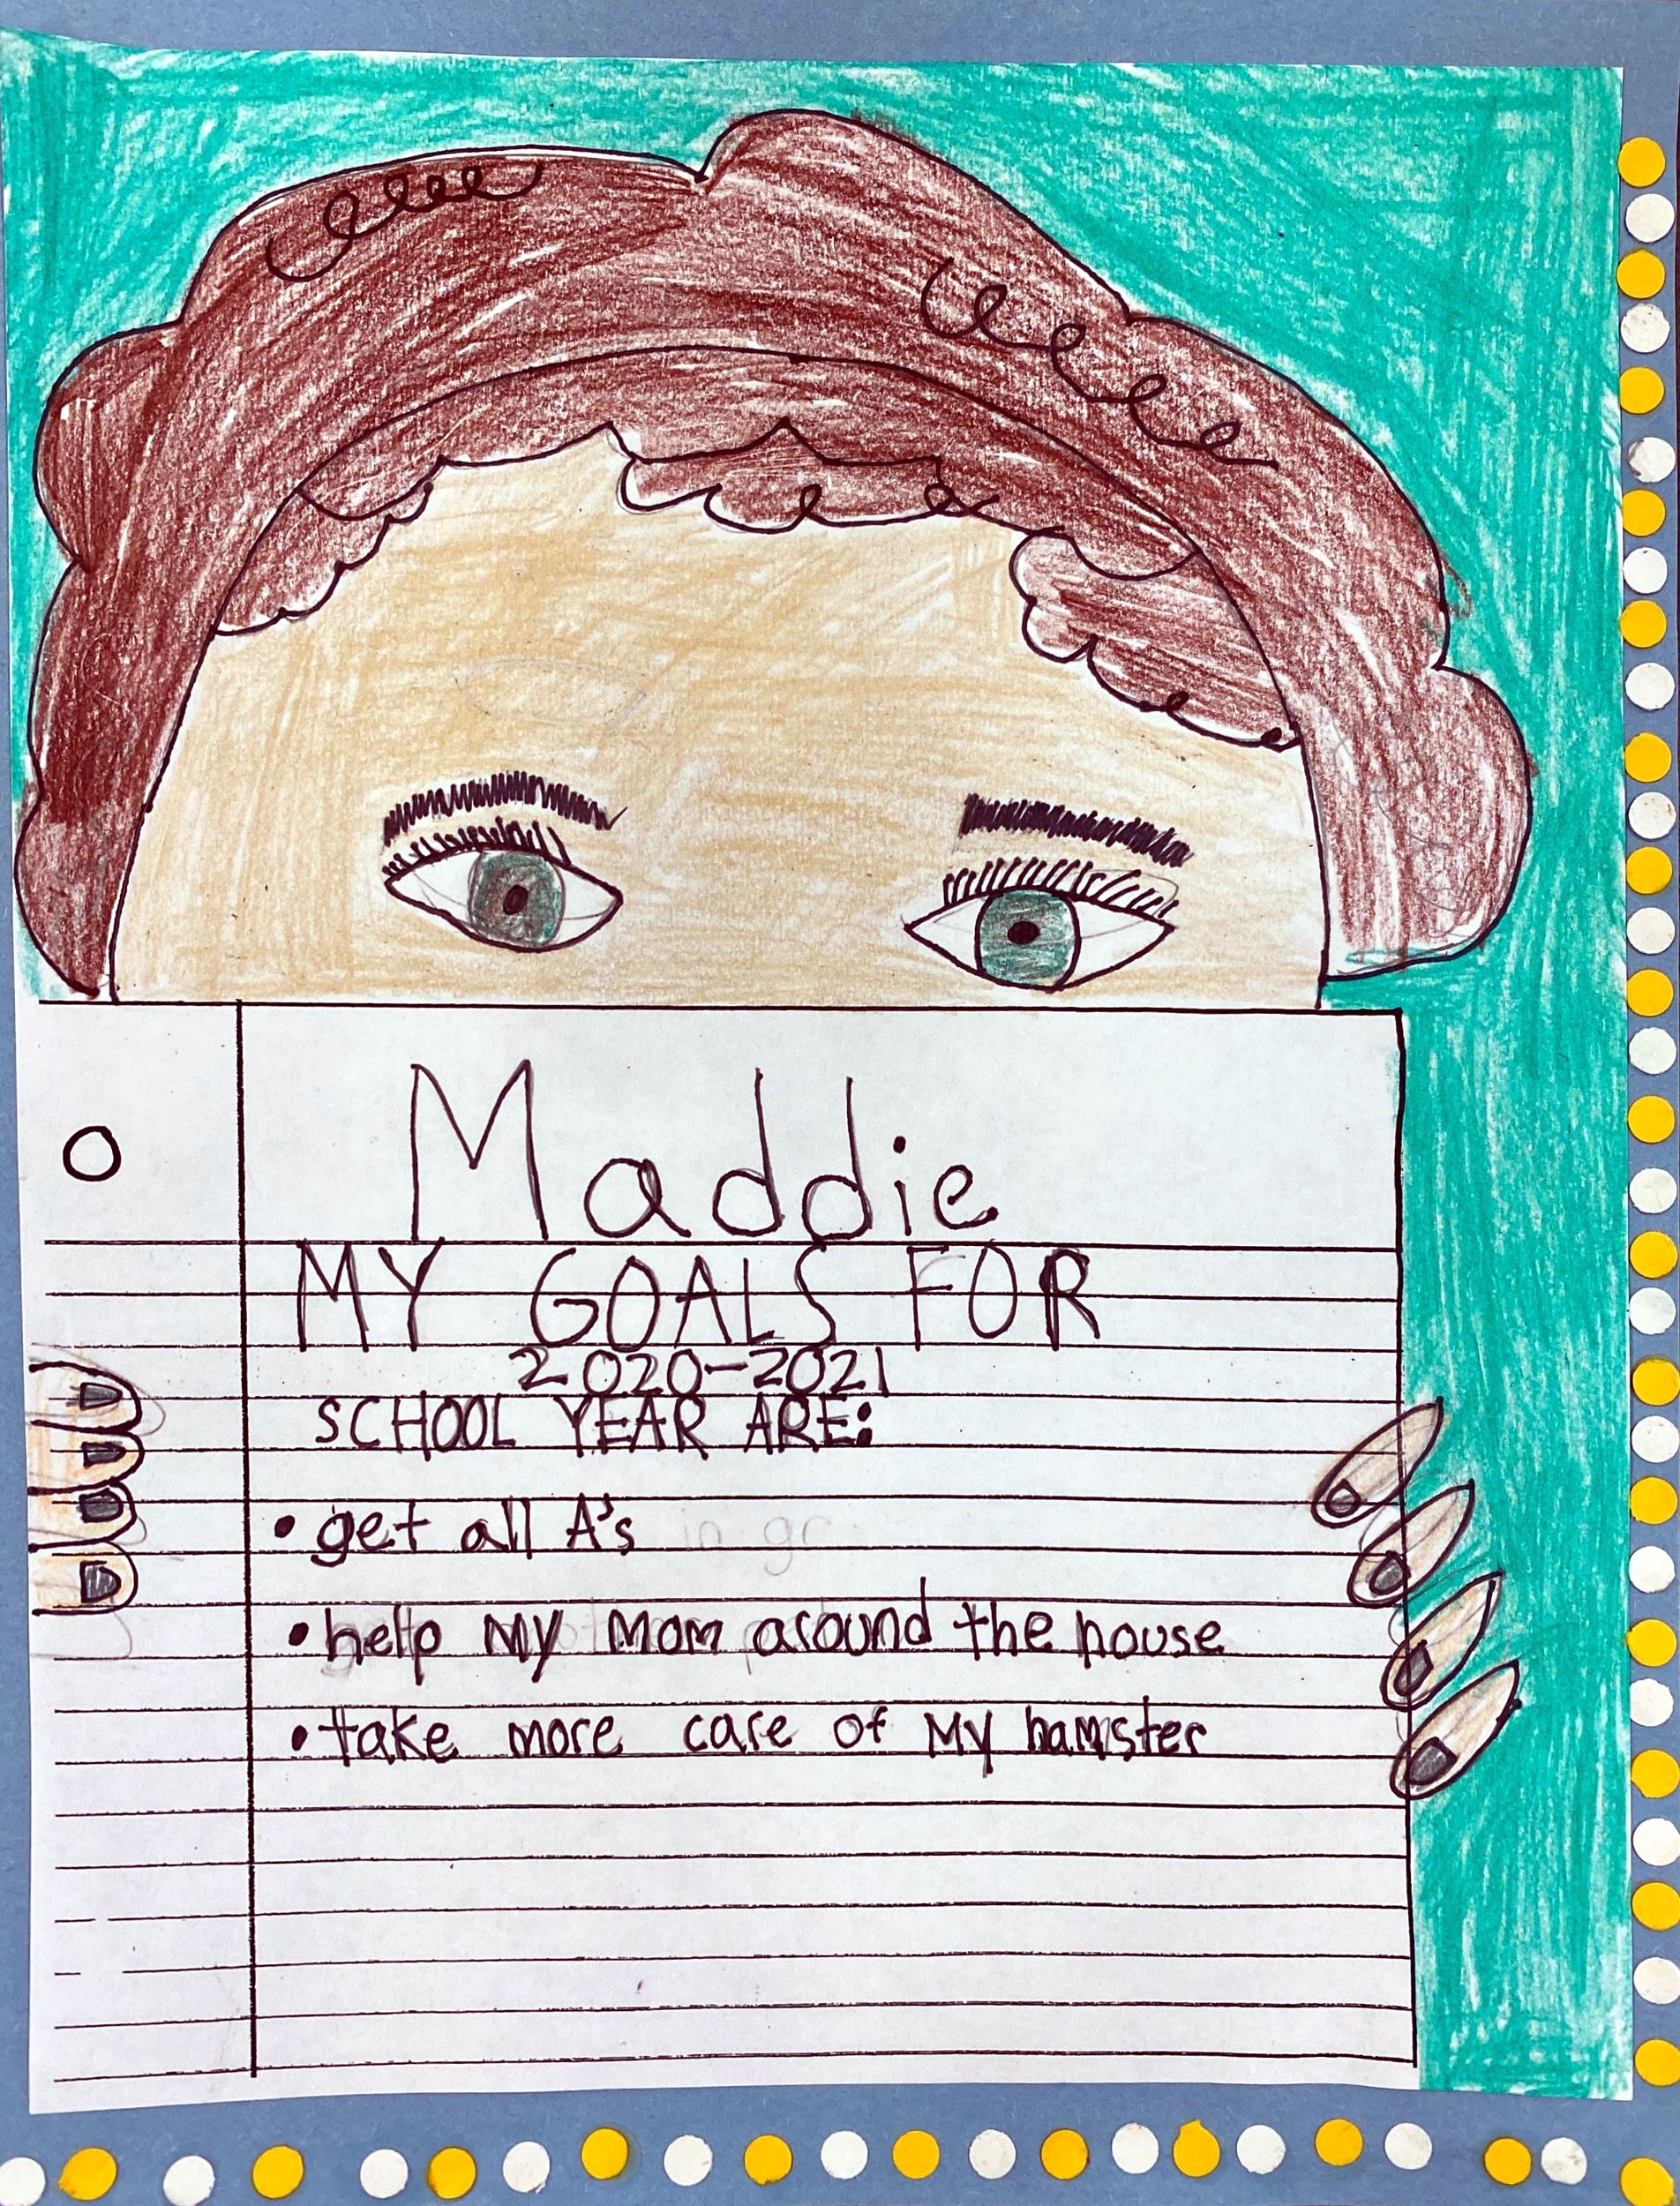 Maddie
MY GOALS FOR
2020-2021
SCHOOL YEAR ARE:
• get all A's in gr
• help my mom around the house
• take more care of my hamster